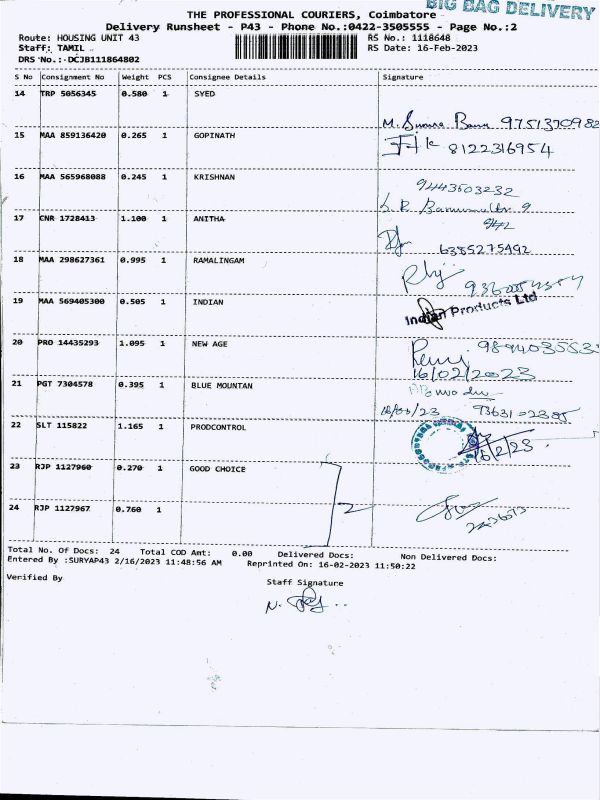 BIG BAG DELIVERY
THE PROFESSIONAL COURIERS, Coimbatore
Delivery Runsheet - P43 - Phone No.:0422-3505555 - Page No.:2
Route: HOUSING UNIT 43 RS No.: 1118648
Staff: TAMIL RS Date: 16-Feb-2023
DRS No.:-DCJB111864802
S No Consignment No Weight PCS Consignee Details Signature
14 TRP 5056345 0.580 1 SYED
9751370982
15 MAA 859136420 0.265 1 GOPINATH
8122316954
16 MAA 565968088 0.245 1 KRISHNAN
9443503232
17 CNR 1728413 1.100 1 ANITHA
6385275492
18 MAA 298627361 0.995 1 RAMALINGAM
19 MAA 569405300 0.505 1 INDIAN
Indian Products Ltd
20 PRO 14435293 1.095 1 NEW AGE
16/02/2023
21 PGT 7304578 0.395 1 BLUE MOUNTAN
22 SLT 115822 1.165 1 PRODCONTROL
16/2/23
23 RJP 1127960 0.270 1 GOOD CHOICE
2
24 RJP 1127967 0.760 1
Total No. Of Docs: 24 Total COD Amt: 0.00 Delivered Docs: Non Delivered Docs:
Entered By :SURYAP43 2/16/2023 11:48:56 AM Reprinted On: 16-02-2023 11:50:22
Verified By Staff Signature